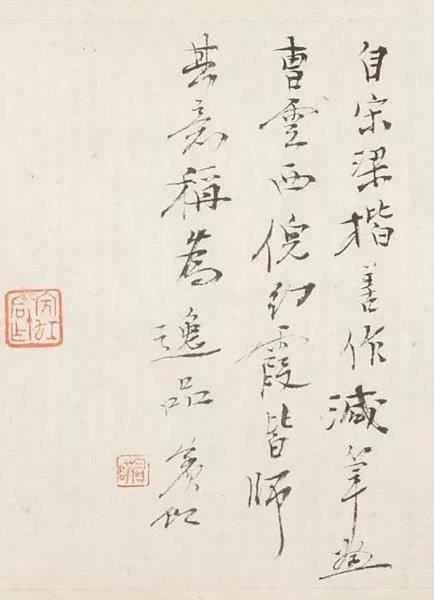 自宋梁楷善作減筆畫
曹雲西倪幻霞皆師
其意稱為逸品 賓虹